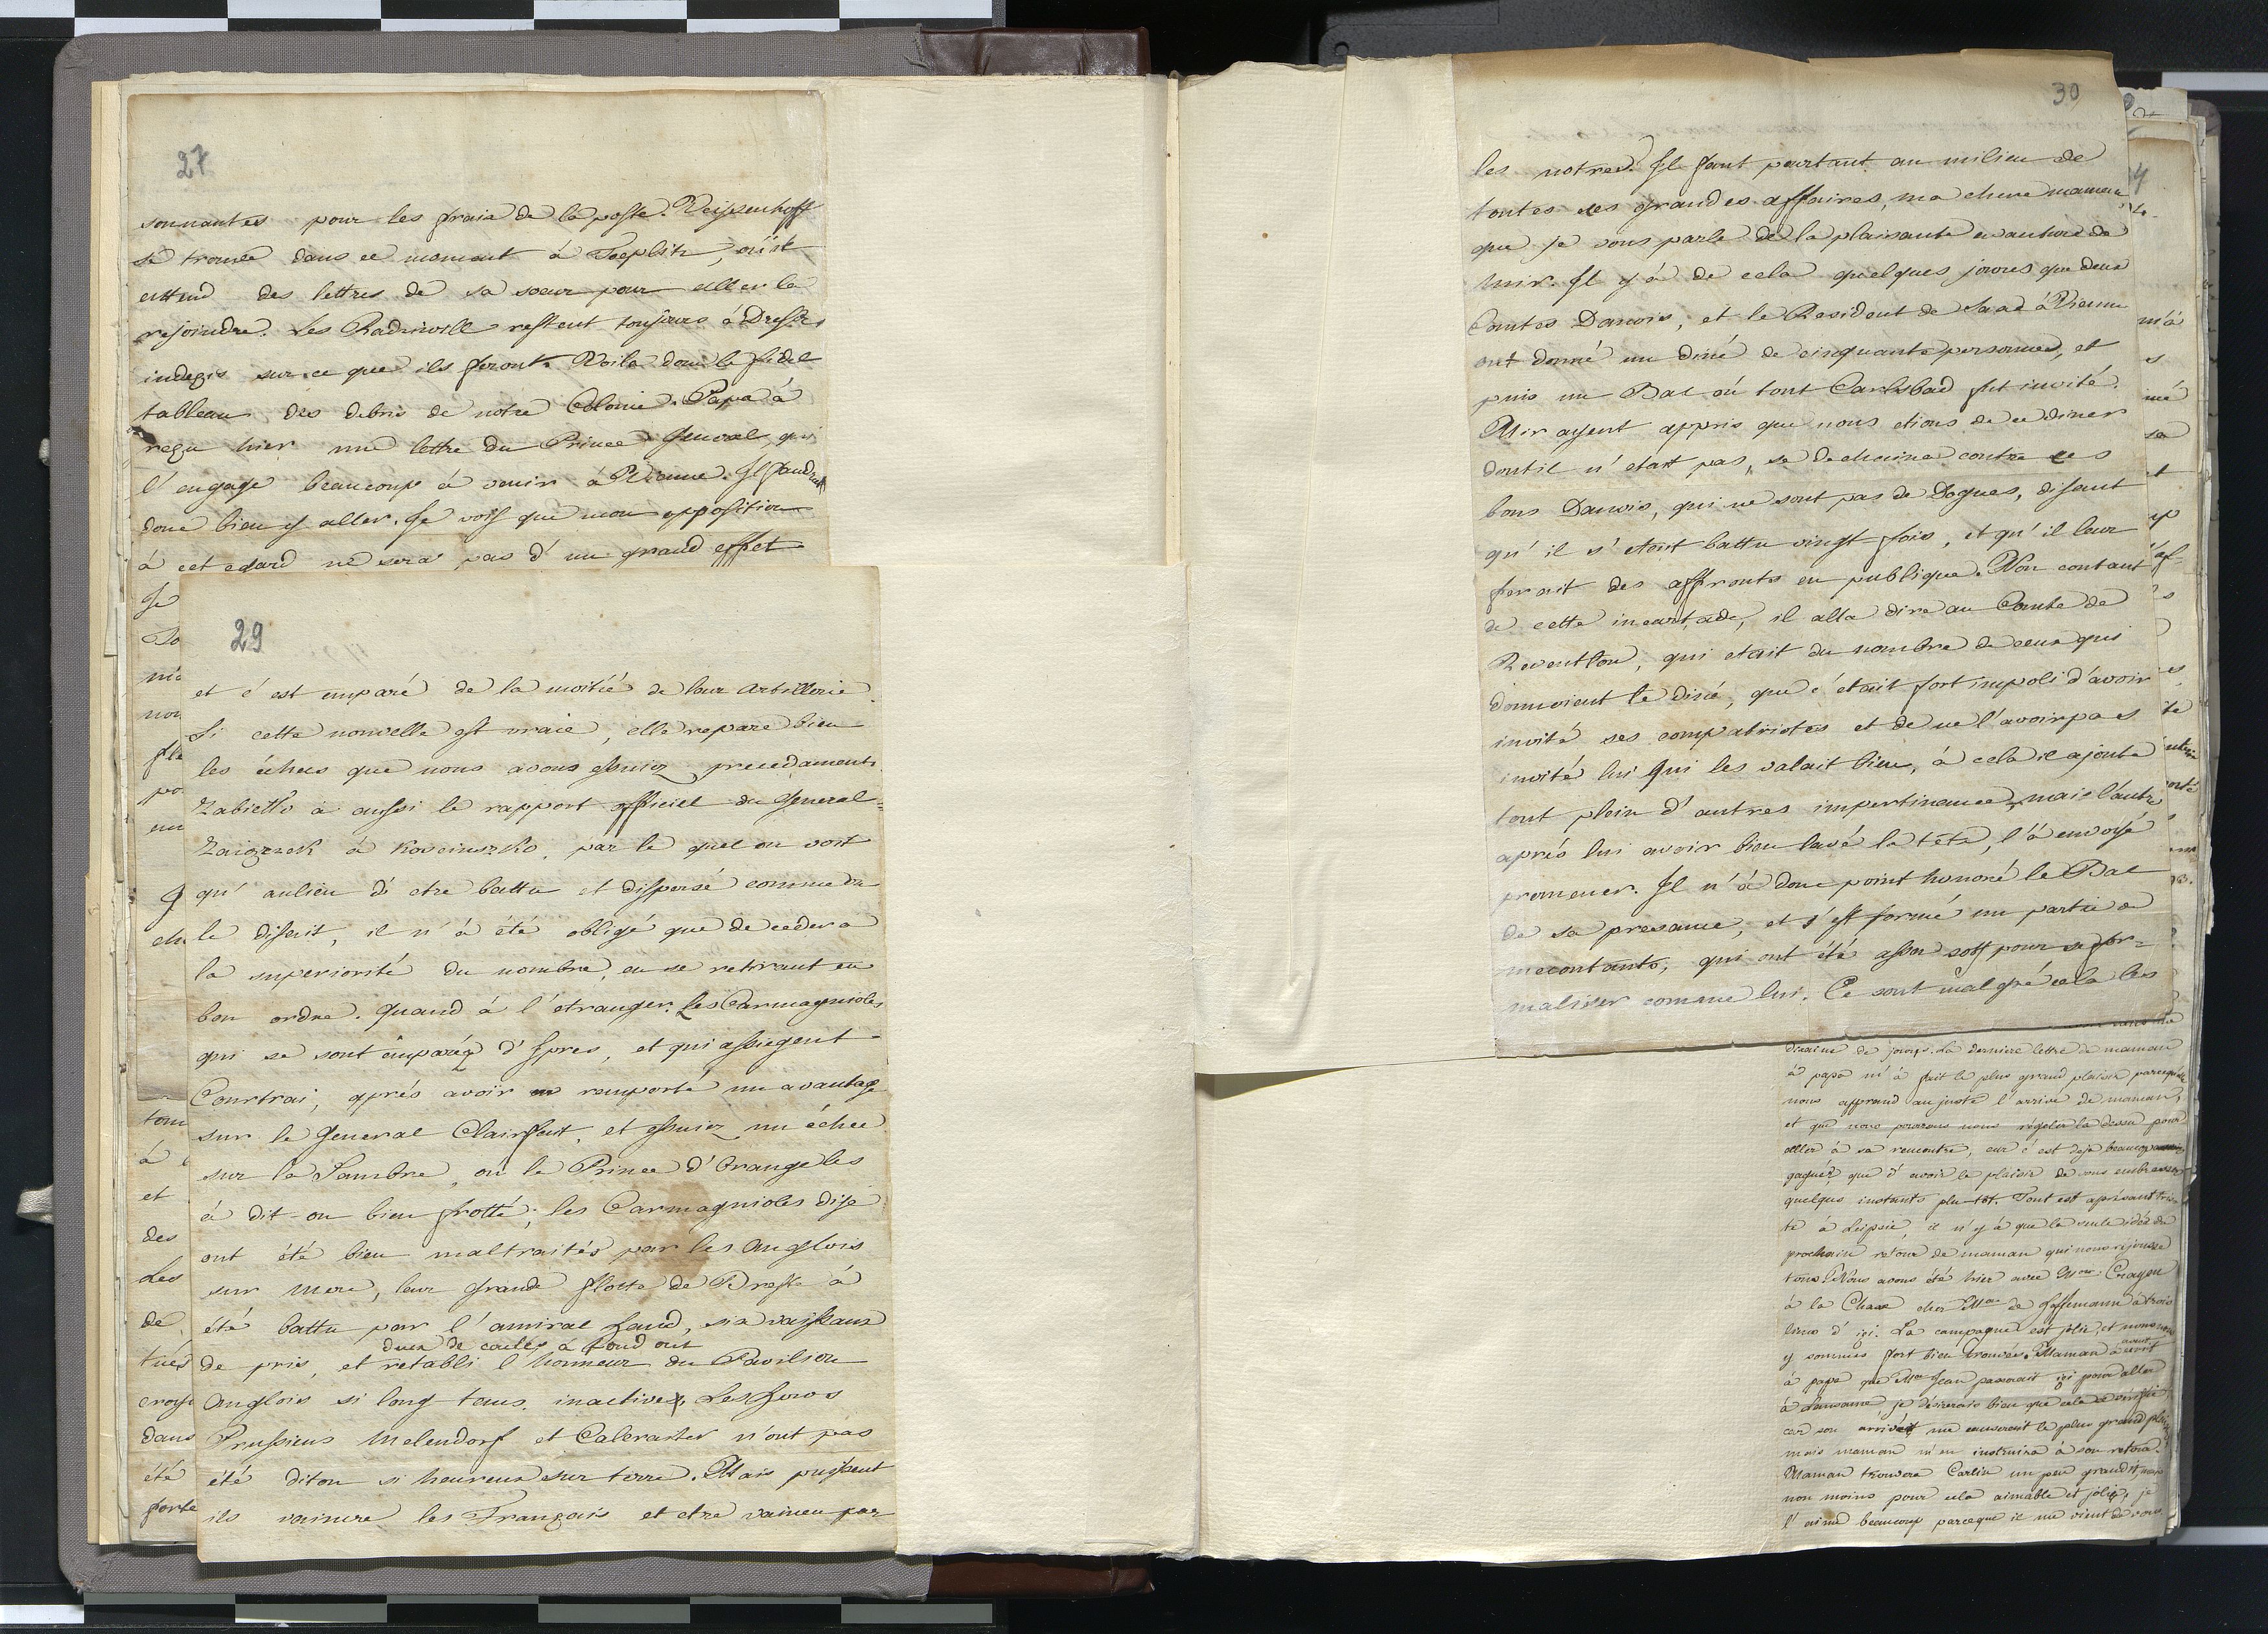 27
sonnantes pour les frais de la poste. Weissenhoff
se trouve dans ce moment à Toeplitz, où il
attend des lettres de sa soeur pour aller la
rejoindre. Les Radziwill restent toujours à Dresde
indegis sur ce que ils feront. Voila donc le fidel
tableau des debris de notre Colonie. Papa à
reçu hier une lettre du Prince General, qui
l'engage beaucoup à venir à Vienne. Il faudra
donc bien y aller. Je vois que mon opposition
à cet egard ne sera pas d'un grand effet
Je
29
et s'est emparé de la moitié de leur artillerie.
Si cette nouvelle est vraie, elle repare bien
les échecs que nous avons essuiez precedament.
Zabiello à aussi le rapport officiel du General
Zaiączek à Kosciuszko, par le quel on voit
qu'aulieu d'etre battu et dispersé comme on
le disait, il n'à été obligé que de ceder à
la superiorité du nombre, en se retirant en
bon ordre. Quand à l'etranger. Les Carmagnioles
qui se sont emparéz d'Ypres, et qui assiegent
Courtrai, après avoir remporté un avantage
sur le General Clairfait, et essuiez un échec
sur la Sambre, où le Prince d'Orange les
à dit-on bien frotté; les Carmagnioles dis-je
ont été bien maltraités par les Anglois
sur mere, leur grande flotte de Breste à
été battu par l'amiral Haud, six vaisseaux
deux de coulés à fond ont
de pris, et retabli l'honneur du Pavilion
Anglois si long tems inactive. Les Heros
Prussiens Melendorf et Calcraiter n'ont pas
été diton si heureux sur terre. Mais puissent
ils vaincre les Français et etre vaincu par
tom
à
et
des
Les
de
tués
dans
été
forte
30
les notres. Il faut pourtant au milieu de
toutes ces grandes affaires, ma chere maman
que je vous parle de la plaisante avanture de
Mir. Il y à de cela quelques joures que deux
Comtes Danois, et le Resident de Saxe à Vienne
ont donné un diné de cinquante personnes, et
puis un Bal où tout Carlsbad fut invité.
Mir ayent appris que nous etions de ce diner
dontil n'etait pas, se dechaina contre ces
bons Danois, qui ne sont pas de Dogues, disant
qu'il s'etait battu vingt fois, et qu'il leur
ferait des affronts en publique. Non contant
de cette incartade, il alla dire au Comte de
Reventlou, qui etait du nombre de ceux qui
donnoient le diné, que c'était fort impoli d'avoir
invité ses compatriotes et de ne l'avoir pas
invité lui qui les valait bien, à cela il ajouta
tout plein d'autres impertinances, mais l'autre
après lui avoir bien lavé la tête, l'à envoyé
promener. Il n'à donc point honoré le Bal
de sa presance, et s'est formé un partie de
mecontants, qui ont été assez sott pour se for-
maliser comme lui. Ce sont malgré cela les
dixaine de jours. La derniere lettre de maman
à papa m'à fait le plus grand plaisir parcequ'elle
nous apprand au juste l'arrivé de maman,
et que nous pourons nous régeler la dessu pour
aller à sa rencontre, car c'est deja beaucoup
gagnéz que d'avoir le plaisir de vous embrasser
quelques instants plu tôt. Tout est apresant tris-
te à Leipsic, il n'y à que la seule idée du
prochain retour de maman qui nous rejouisse
tous. Nous avons été hier avec Mme Crayen
à la Chasse chez Mme de Hoffmann à trois
lieus d'ici. La campagne est jolie, et nous nous
y sommes fort bien trouvés. Maman à ecrit
à papa que Mr Jean passerait ici pour aller
à Lausanne, je désirerais bien que cela
car son arrivée me causerait le plus grand plaisir
mais maman m'en instruira à son retour.
Maman trouvera Carlin un peu grandit, mais
non moins pour cela aimable et jolie, je
l'aime beaucoup parceque il me vient de vous